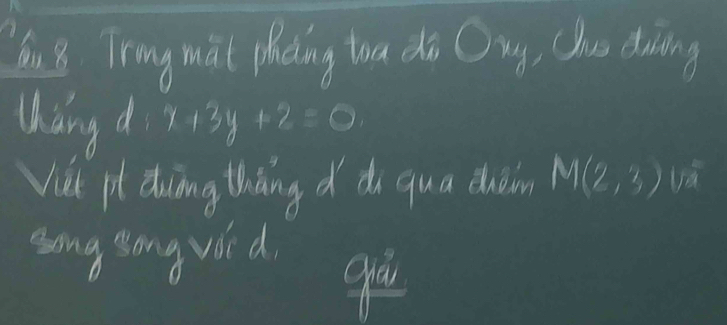 Câu 8. Trong mặt phẳng tọa độ Oxy, Cho đường
thẳng d: x+3y+2=0.
Viết pt đường thẳng d' đi qua điểm M(2,3) và
song song với d.
giải